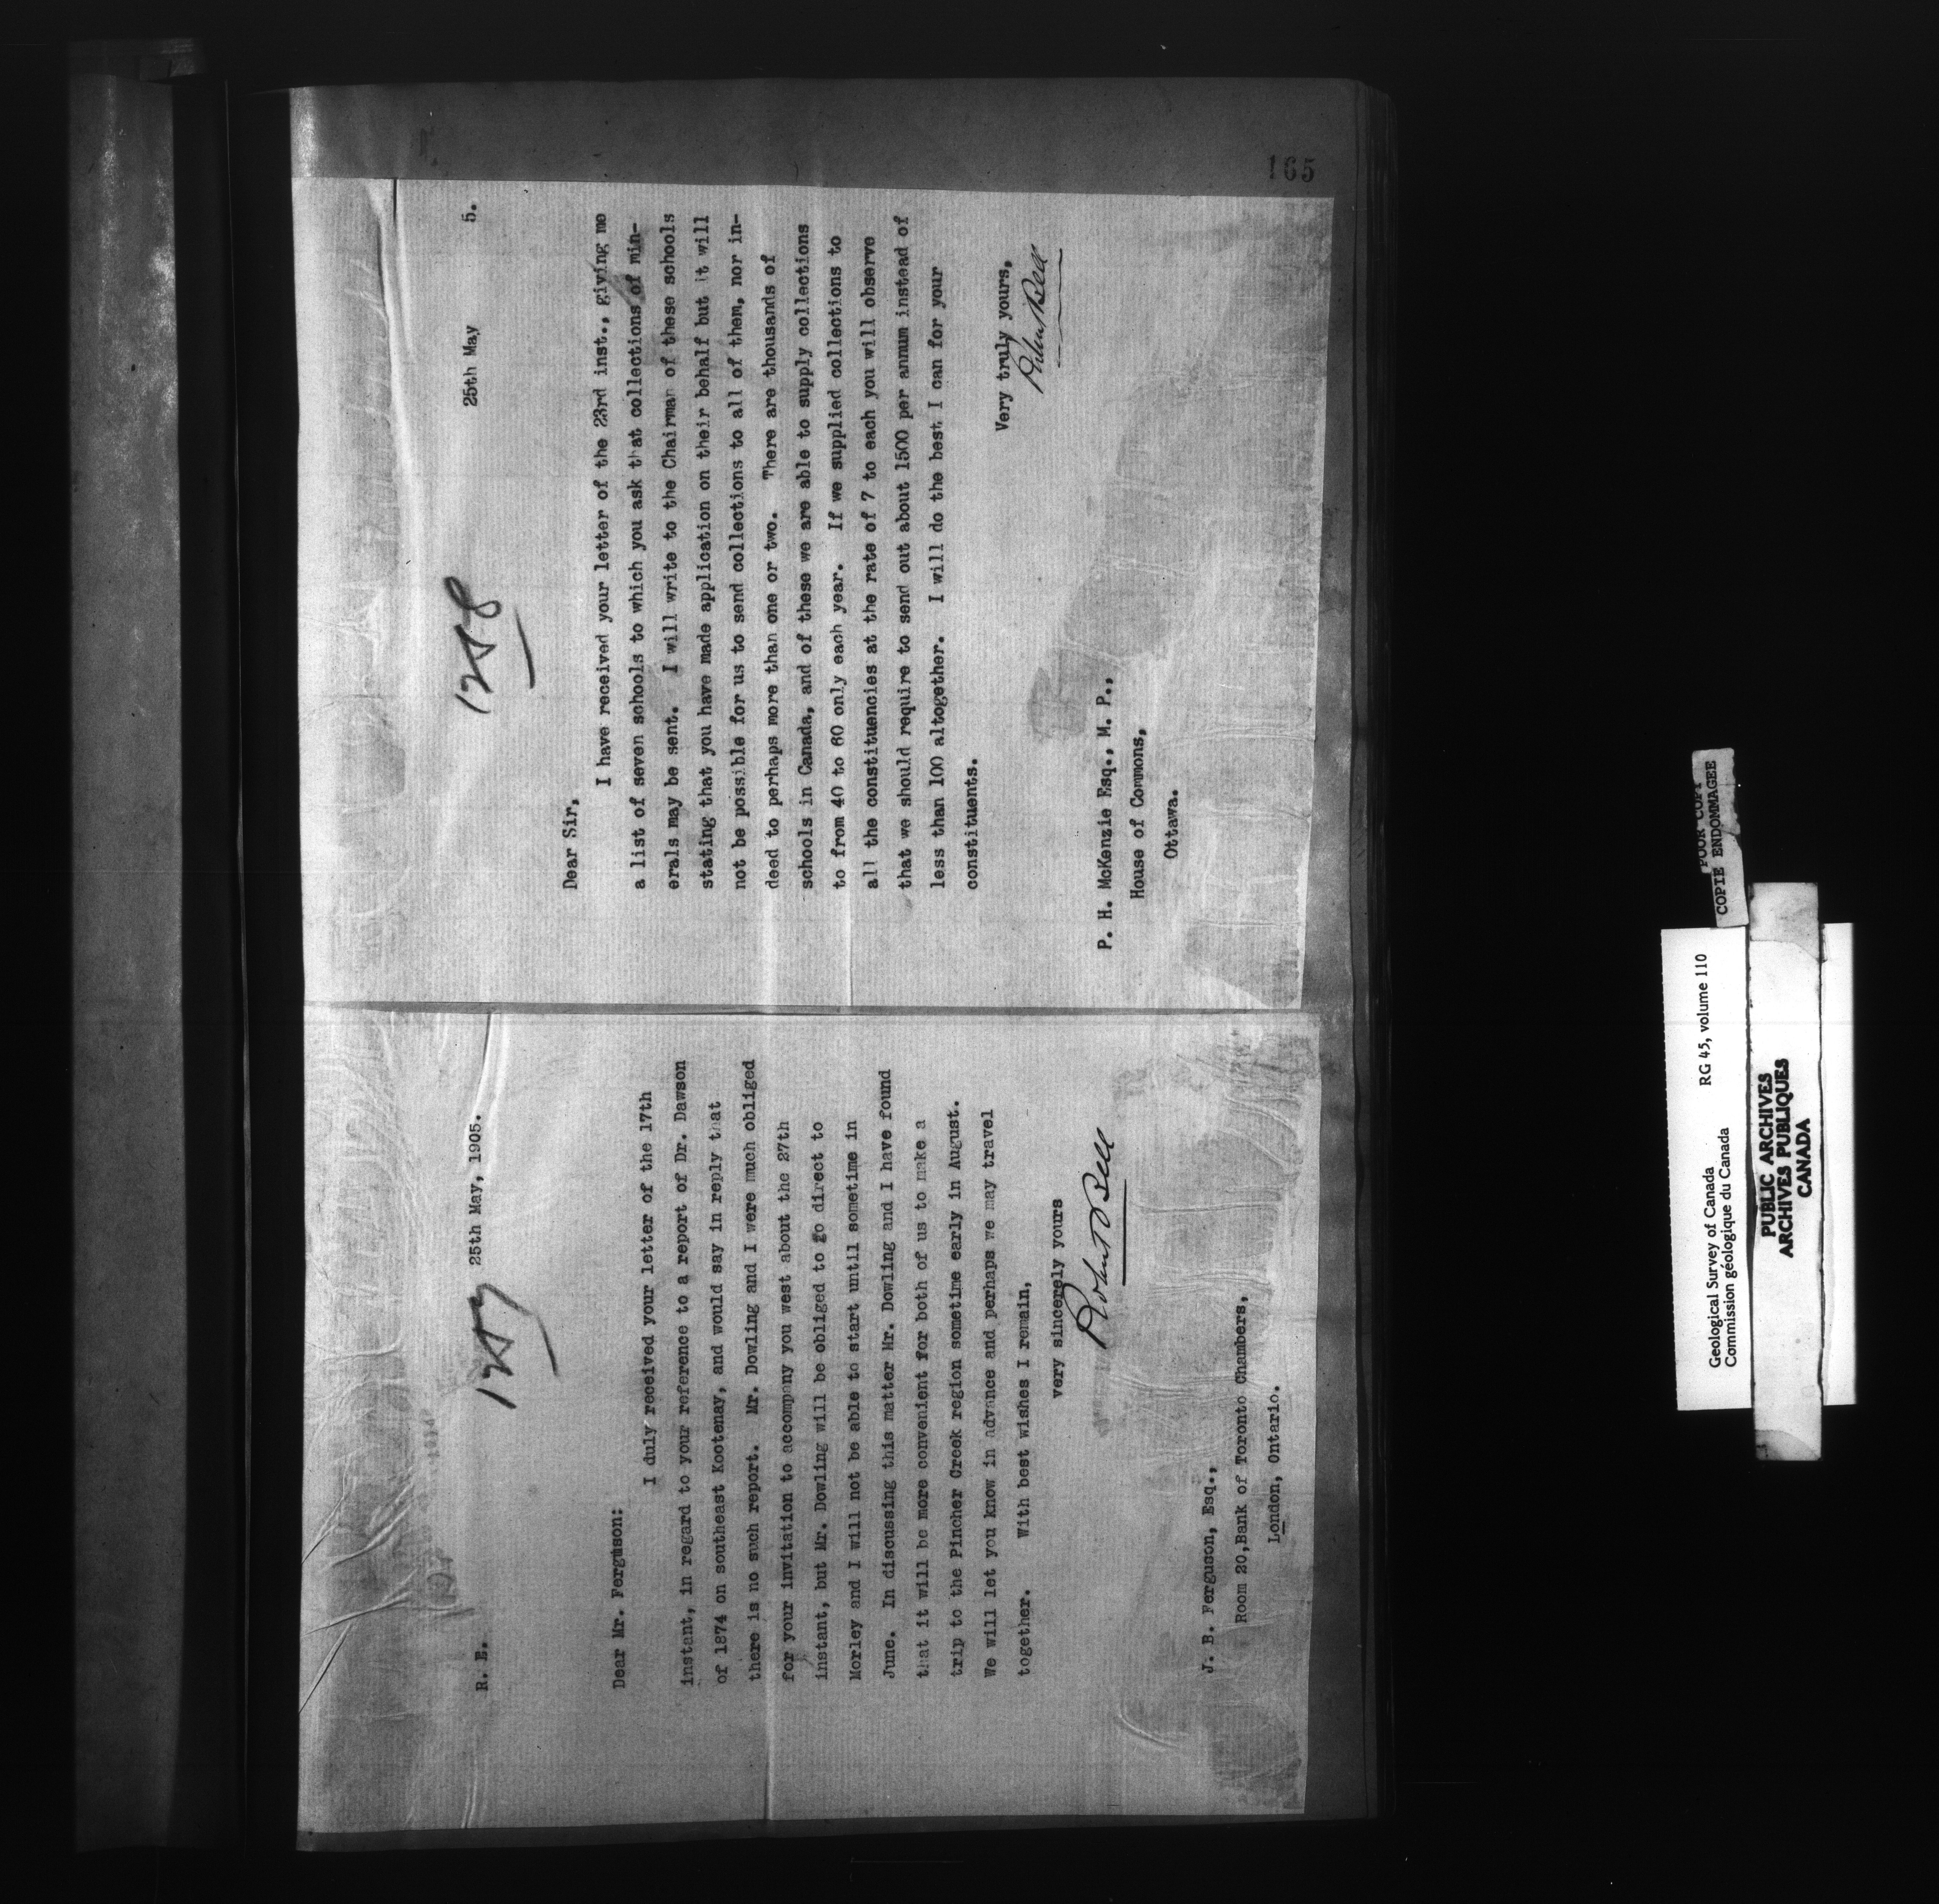 165
1257
R. E.
25th May, 1905.
Dear Mr. Ferguson:
I duly received your letter of the 17th
instant, in regard to your reference to a report of Dr. Dawson
of 1874 on southeast Kootenay, and would say in reply that
there is no such report. Mr. Dowling and I were much obliged
for your invitation to accompany you west about the 27th
instant, but Mr. Dowling will be obliged to go direct to
Morley and I will not be able to start until sometime in
June. In discussing this matter Mr. Dowling and I have found
that it will be more convenient for both of us to make a
trip to the Pincher Creek region sometime early in August.
We will let you know in advance and perhaps we may travel
together. With best wishes I remain,
very sincerely yours
Robert Bell
J. B. Ferguson, Esq.,
Room 20, Bank of Toronto Chambers,
London, Ontario.
1258
25th May 5.
Dear Sir,
I have received your letter of the 23rd inst., giving me
a list of seven schools to which you ask that collections of min-
erals may be sent. I will write to the Chairman of these schools
stating that you have made application on their behalf but it will
not be possible for us to send collections to all of them, nor in-
deed to perhaps more than one or two. There are thousands of
schools in Canada, and of these we are able to supply collections
to from 40 to 60 only each year. If we supplied collections to
all the constituencies at the rate of 7 to each you will observe
that we should require to send out about 1500 per annum instead of
less than 100 altogether. I will do the best I can for your
constituents.
Very truly yours,
Robert Bell
P. H. McKenzie Esq., M. P.,
House of Commons,
Ottawa.
Geological Survey of Canada RG 45, volume 110
Commission géologique du Canada
POOR COPY
COPIE ENDOMMAGEE
PUBLIC ARCHIVES
ARCHIVES PUBLIQUES
CANADA